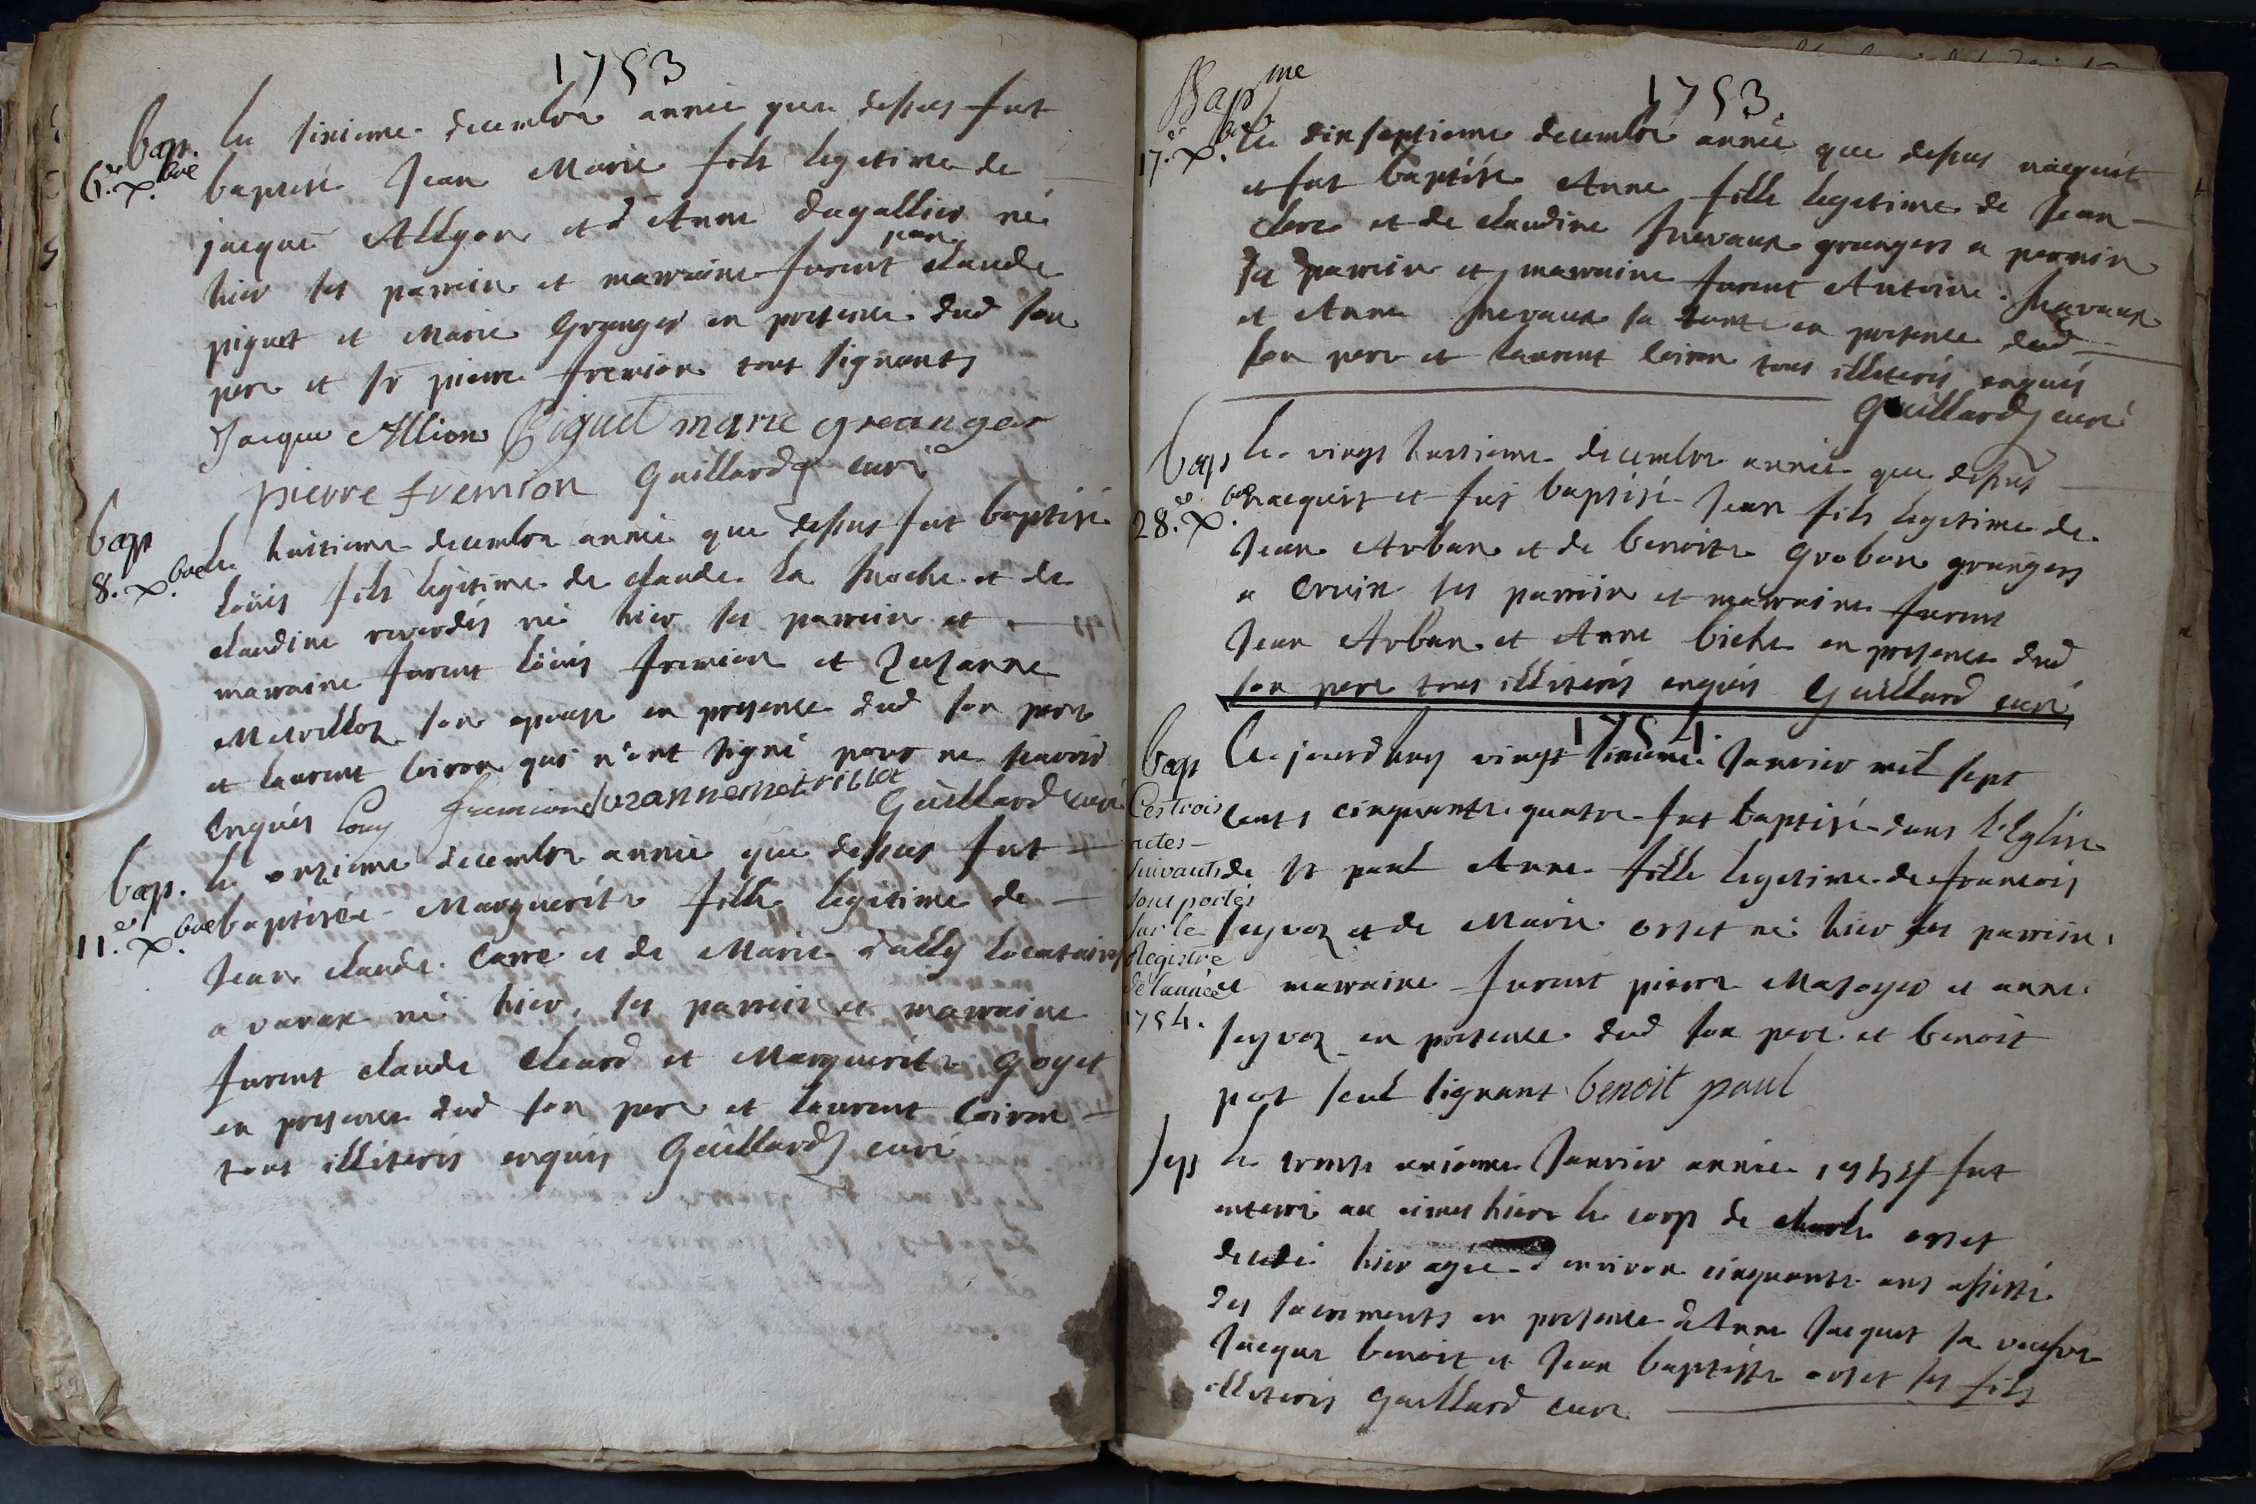 1753
bap. le sixieme decembre année que dessus fut
6.e x.bre baptisé Jean Marie fils legitime de
jacque Allyon et d Anne dugallier né
hier ses parrein et marraine furent claude
pan
piguet et Marie Granger en presence dud son
pere et sr pierre fremion tous signants
Jacque Allion Piguet marie greanger
pierre fremion Guillard curé
bap
8. x.bre le huitieme decembre année que dessus fut baptisé
Loüis fils legitime de claude La Roche et de
claudine reverdis né hier ses parrein et
marraine furent Loüis fremion et Suzanne
Metrillot son epouse en presence dud son pere
et laurent Coiron qui n'ont signé pour ne scavoir
enquis Louy fremion Suzanne metrillot
Guillard curé
bap. le onzieme decembre année que dessus fut
11.e x.bre baptisée Marguerite fille legitime de
Jean claude Carré et de Marie dally Locataires
a varax né hier, ses parrein et marraine
furent claude cleard et Marguerite Goyet
en presence dud son pere et laurent Coiron
tous illiterés enquis Guillard curé
1753.
Bapme
17.e x.bre le dixseptieme decembre année que dessus nacquit
et fut baptisée Anne fille legitime de Jean
clerc et de claudine grangers a perosin
sa parrein et marraine furent Antoine
et Anne sa tante en presence dud
son pere et laurent Coiron tous illiterés enquis
Guillard curé
bap le vingt huitieme decembre année que dessus
28.e x.bre nacquit et fut baptisé Jean fils legitime de
Jean Arban et de benoite Grobon grangers
a Crvin ses parrein et marraine furent
Jean Arban et Anne biche en presence dud
son pere tous illiterés enquis Guillard curé
1754.
bap Ce jourdhuy vingt sixieme Janvier mil sept
cents cinquante quatre fut baptisé dans l'Eglise
de st paul Anne fille legitime de francois
seyvoz et de Marie orset né hier ses parrein
et marraine furent pierre Masoyer et anne
seyvoz en presence dud son pere et benoit
pot seul signant benoit paul
Ces trois
actes
suivants
sont portés
sur le
Registre
de l'année
1754.
sep le trente unieme Janvier année 1754 fut
enterré au cimethiere le corp de charle orset
decedé hier agée d environ cinquante ans assisté
des sacrements en presence d Anne Jacquet sa veufve
Jacque benoit et Jean baptiste orset ses fils
illiterés Guillard curé